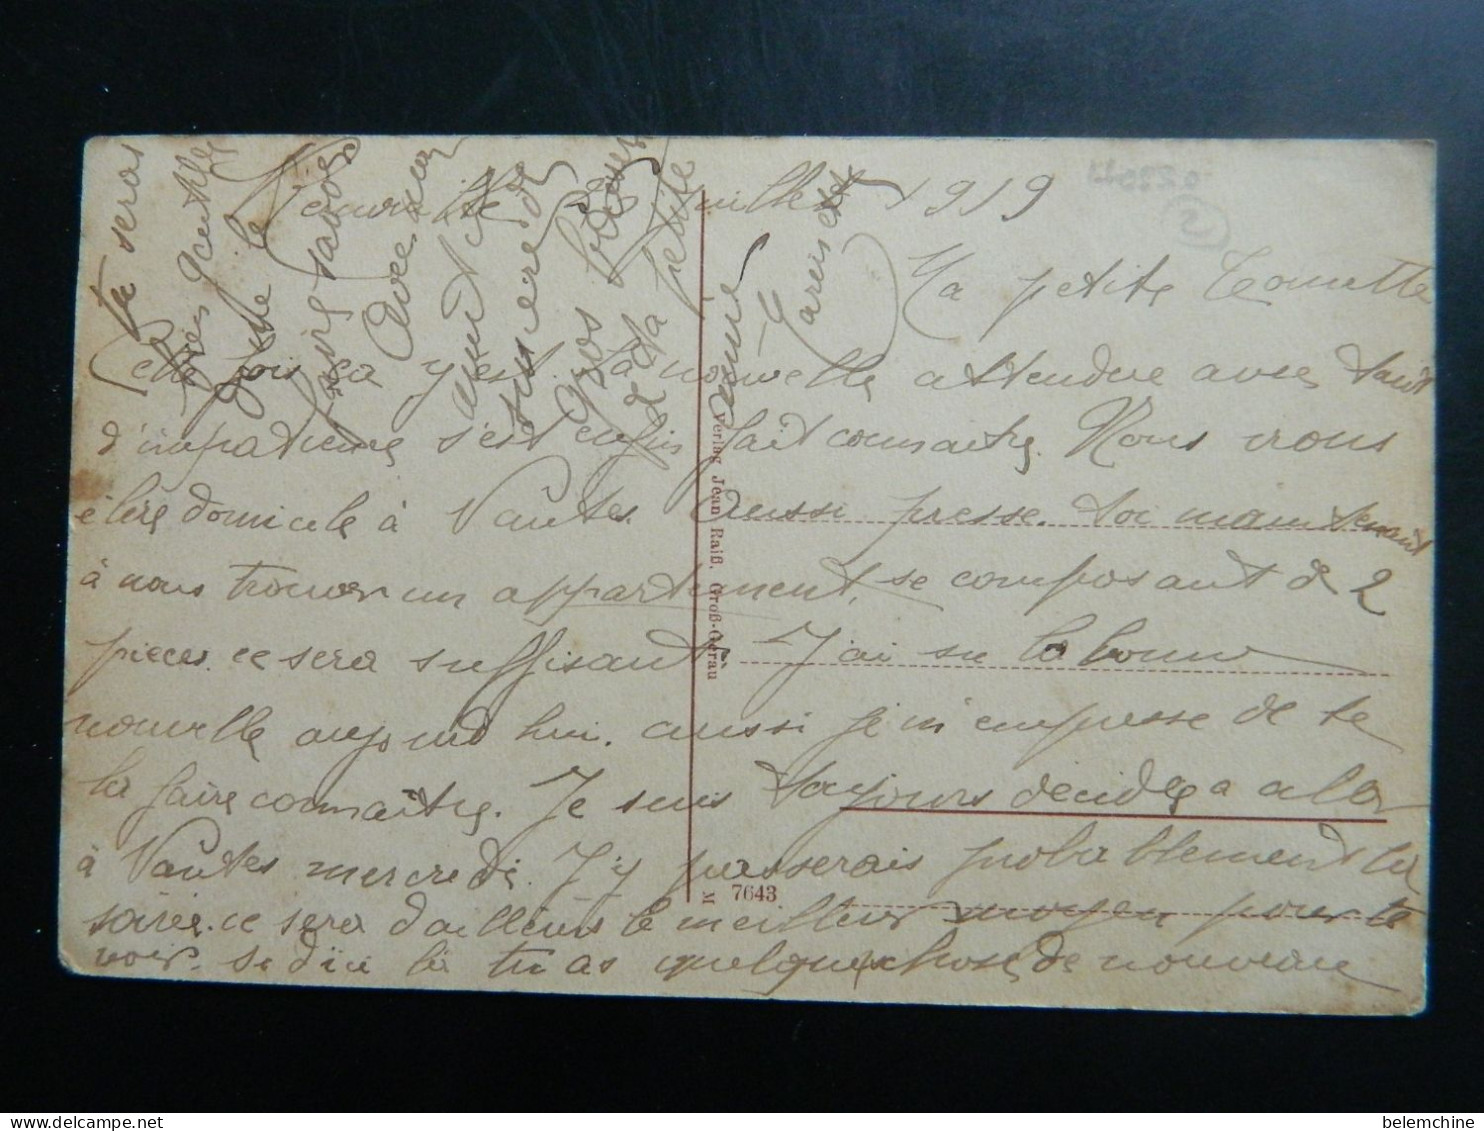 Juillet 1919
Ma petite
Cette fois ça y est. La nouvelle attendue avec tant
d'impatience s'est enfin fait connaitre. Nous irons
élire domicile à Nantes. Aussi presse toi maintenant
à nous trouver un appartement, se composant de 2
pièces. ce sera suffisant. J'ai su la bonne
nouvelle aujourd'hui. aussi je m'empresse de te
la faire connaître. Je suis toujours décidée a aller
à Nantes mercredi. J'y passerais probablement la
soirée. ce sera d'ailleurs le meilleur moyen pour te
voir. Si d'ici là tu as quelque chose de nouveau
tu seras
très gentille
de me le
faire savoir
Avec mon
amitié
sincère
gros baisers
de ta petite
amie
Verlag Jean Raiß, Groß-Gerau
M 7643
2
belemchine